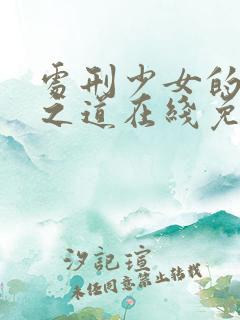 處刑少女的
之道在綫免
汐記瑄
未经同意禁止转载